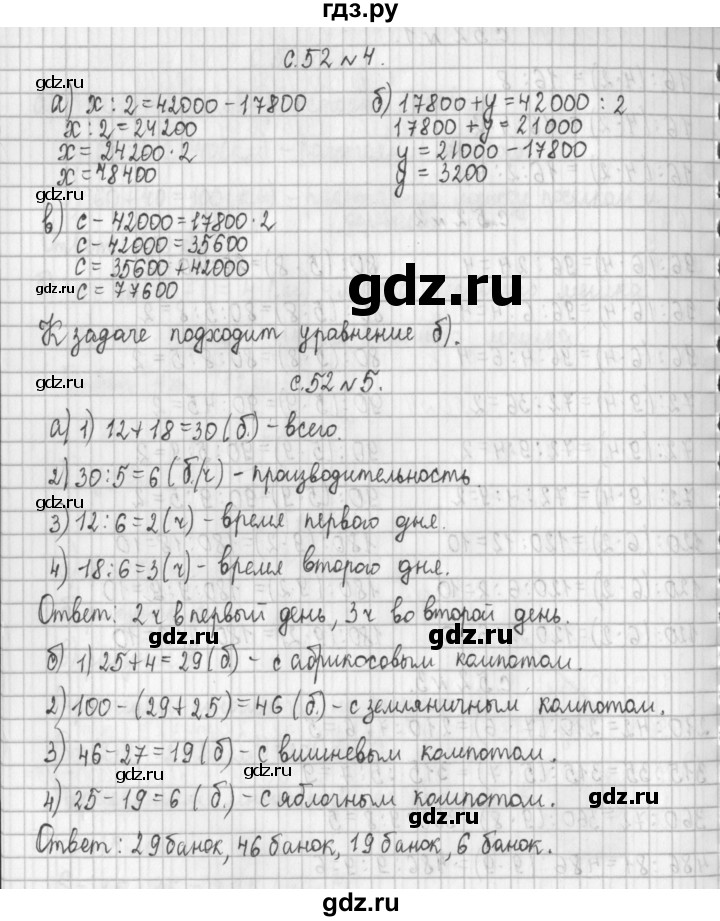 гдз.ру
с.52 №4.
gdz.ru
а) x : 2 = 42000 - 17800
б) 17800 + y = 42000 : 2
x : 2 = 24200
17800 + y = 21000
x = 24200 · 2
y = 21000 - 17800
x = 48400
y = 3200
gdz.ru
в) c - 42000 = 17800 · 2
c - 42000 = 35600
c = 35600 + 42000
gdz.ru
c = 77600
gdz.ru
К задаче подходит уравнение б).
gdz.ru
с.52 №5.
а) 1) 12 + 18 = 30 (б.) - всего.
2) 30 : 5 = 6 (б./ч) - производительность.
gdz.ru
3) 12 : 6 = 2 (ч) - время первого дня.
4) 18 : 6 = 3 (ч) - время второго дня.
Ответ: 2 ч в первый день, 3 ч во второй день.
gdz.ru
б) 1) 25 + 4 = 29 (б.) - с абрикосовым компотом.
2) 100 - (29 + 25) = 46 (б.) - с земляничным компотом.
3) 46 - 27 = 19 (б) - с вишневым компотом.
gdz.ru
4) 25 - 19 = 6 (б.) - с яблочным компотом.
gdz.ru
Ответ: 29 банок, 46 банок, 19 банок, 6 банок.
gdz.ru